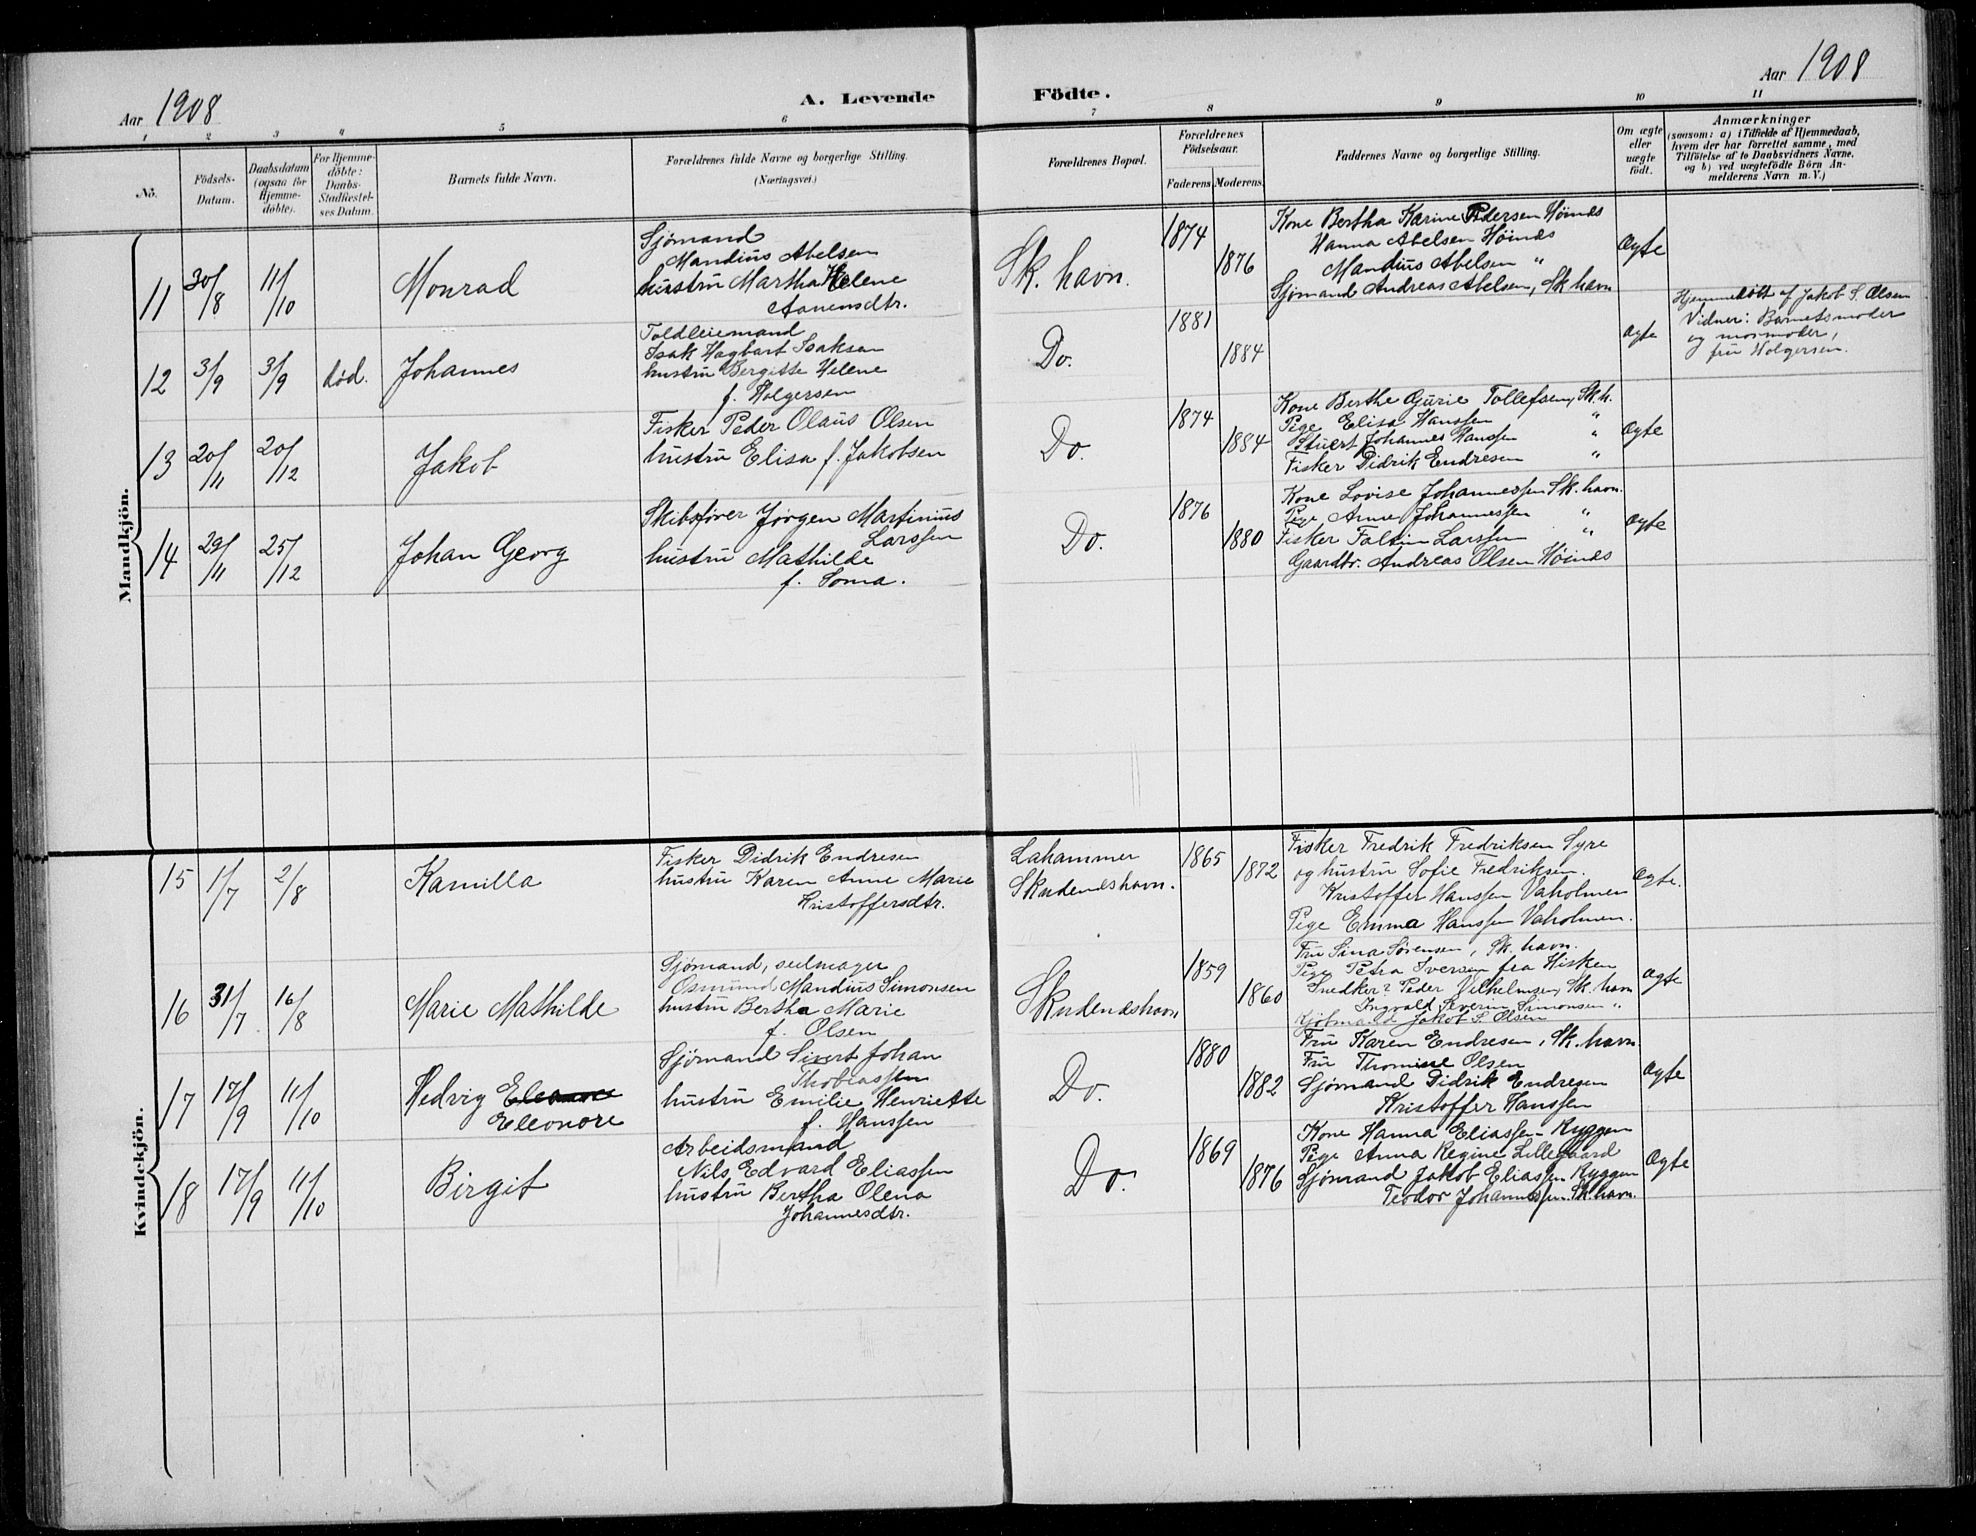 Aar 1908
A. Levende Födte.
Aar 1908
1 2 3 4 5 6 7 8 9 10 11
No.
Födsels-Datum.
Daabsdatum (ogsaa for Hjemmedöbte).
For Hjemmedöbte: Daabs-Stadfæstelses Datum.
Barnets fulde Navn.
Forældrenes fulde Navne og borgerlige Stilling.
(Næringsvei.)
Forældrenes Bopæl.
Forældrenes Födselsaar.
Faderens Moderens.
Faddernes Navne og borgerlige Stilling.
Om ægte eller uægte födt.
Anmærkninger
(saasom: a) i Tilfælde af Hjemmedaab, hvem der har forrettet samme, med Tilföielse af to Daabsvidners Navne, og b) ved uægtefödte Börn Anmelderens Navn m. V.)
Mandkjön.
11 30/8 11/10 Monrad
Sjömand
Mandius Abelsen
hustru Martha Helene
Aanensdtr.
Sk. havn. 1874 1876
Kone Bertha Karine Pedersen Høines
Hanna Abelsen Høines
Mandius Abelsen "
Sjømand Andreas Abelsen, Sk havn
Ægte
12 3/9 3/9 død. Johannes
Toldleiemand
Isak Hagbart Isaksen
hustru Bergitte Helene
f. Holgersen
Do. 1881 1884
ægte
Hjemmedöbt af Jakob S. Olsen
Vidner: Barnets moder
og mormoder,
fru Holgersen.
13 20/11 20/12 Jakob
Fisker Peder Olaus Olsen
hustru Elisa f. Jakobsen
Do. 1874 1884
Kone Berthe Gurie Tollefsen, Sk. h.
Pige Elisa Hanssen "
Stuert Johannes Hanssen "
Fisker Didrik Endresen "
Ægte
14 29/11 25/12 Johan Georg
Skibsfører Jørgen Martinius
Larssen
hustru Mathilde
f. Soma.
Do. 1876 1880
Kone Lovise Johannessen Sk. havn.
Pige Anne Johannessen "
Fisker Faltin Larssen "
Gaardbr. Andreas Olsen Høines
Ægte
Kvindekjön.
15 1/7 2/8 Kamilla
Fisker Didrik Endresen
hustru Karen Anne Marie
Kristoffersdtr.
Lahammer
Skudeneshavn. 1865 1872
Fisker Fredrik Fredriksen Syre
og hustru Sofie Fredriksen.
Kristoffer Hanssen Vaholmen
Pige Emma Hanssen Vaholmen.
Ægte.
16 31/7 16/8 Marie Mathilde
Sjømand, seilmager
Osmund Mandius Simonsen
hustru Bertha Marie
f. Olsen
Skudeneshavn 1859 1860
Fru Sina Sørensen, Sk. havn.
Pige Petra Iversen fra Hisken
Snedker Peder Vilhelmsen, Sk. havn
Ingvald Severin Simonsen "
Kjøbmand Jakob S. Olsen
Ægte
17 17/9 11/10 Hedvig Eleonore
Eleonore
Sjømand Sivert Johan
Thobiassen
hustru Emilie Henriette
f. Hanssen
Do. 1880 1882
Fru Karen Endresen, Sk. havn.
Fru Thomine Olsen
Sjømand Didrik Endresen
Kristoffer Hanssen
Ægte
18 17/9 11/10 Birgit
Arbeidsmand
Nils Edvard Eliassen
hustru Bertha Olena
Johannesdtr.
Do. 1869 1876
Kone Hanna Eliassen Ryggen
Pige Anna Regine Lillegaard
Sjømand Jakob Eliassen Ryggen
Teodor Johannessen Sk. havn.
Ægte